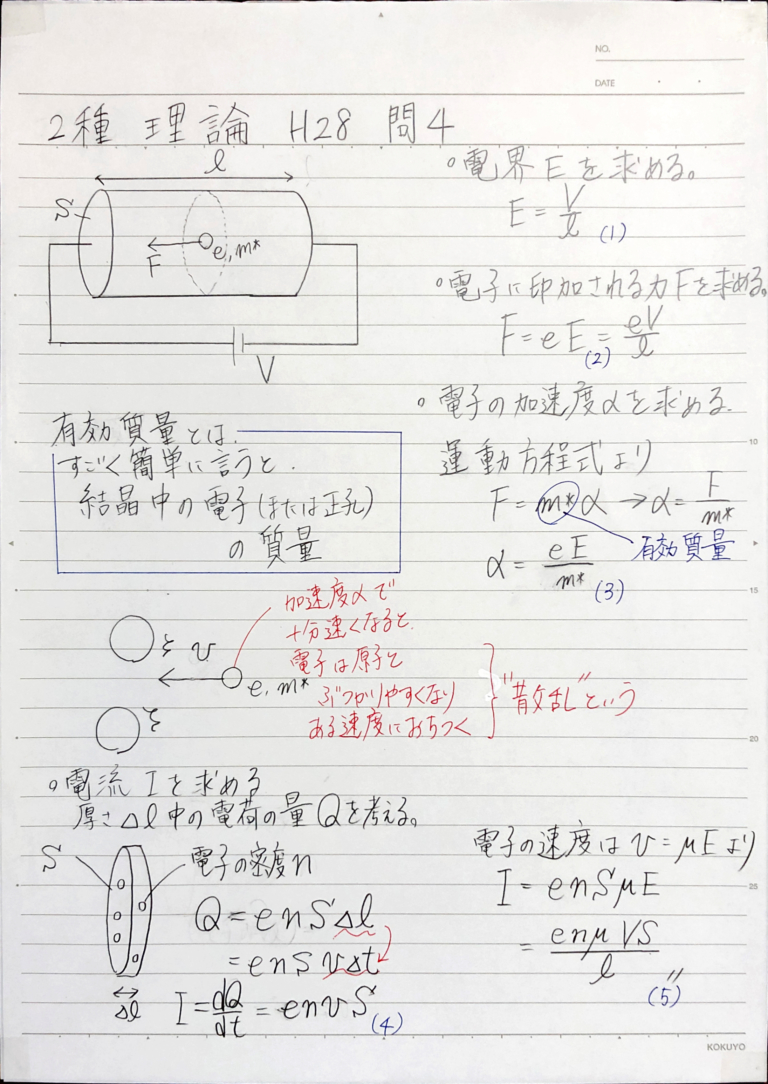 NO.
DATE
2種 理論 H28 問4
l
S
F
e, m*
V
◦電界Eを求める。
E = V/l (1)
◦電子に印加される力Fを求める。
F = eE = eV/l (2)
◦電子の加速度αを求める.
運動方程式より
F = m*α → α = F/m*
有効質量
α = eE/m* (3)
有効質量とは.
すごく簡単に言うと.
結晶中の電子(または正孔)
の質量
加速度αで
十分速くなると.
電子は原子と
ぶつかりやすくなり
ある速度におちつく
"散乱"という
v
e, m*
◦電流Iを求める
厚さΔl中の電荷の量Qを考える。
S
電子の密度n
Q = enSΔl
= enSvΔt
Δl
I = dQ/dt = envS (4)
電子の速度はv=μEより
I = enSμE
= enμVS/l 〃
(5)
10
15
20
25
KOKUYO